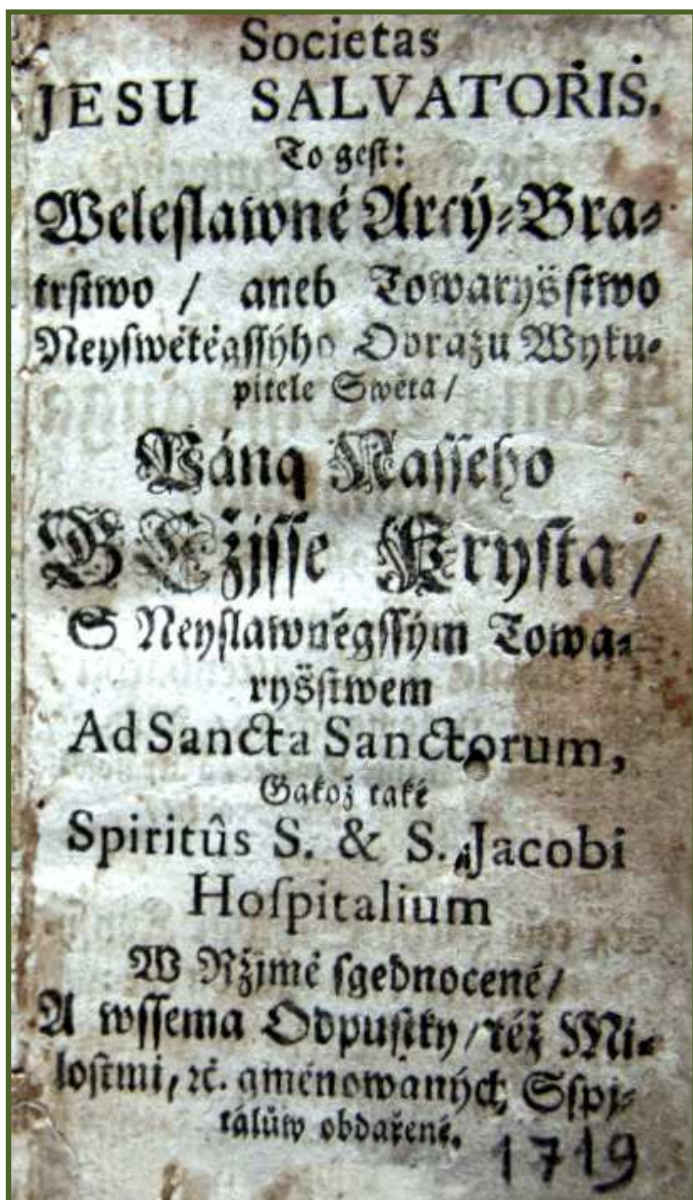 Societas
JESU SALVATORIS.
To gest:
Weleslawné Arcý-Bra-
trstwo / aneb Towaryšstwo
Neyswětěgssýho Obrazu Wyku-
pitele Swěta /
Pána Nasseho
GEžjsse Krysta /
S Neyslawněgssým Towa-
ryšstwem
Ad Sancta Sanctorum,
Gakož také
Spiritûs S. & S. Jacobi
Hospitalium
W Ržjmě sgednocené /
A wssema Odpustky / též Mi-
lostmi, ꝛc. gmenowaných Sspj-
tálůw obdařené.
1719